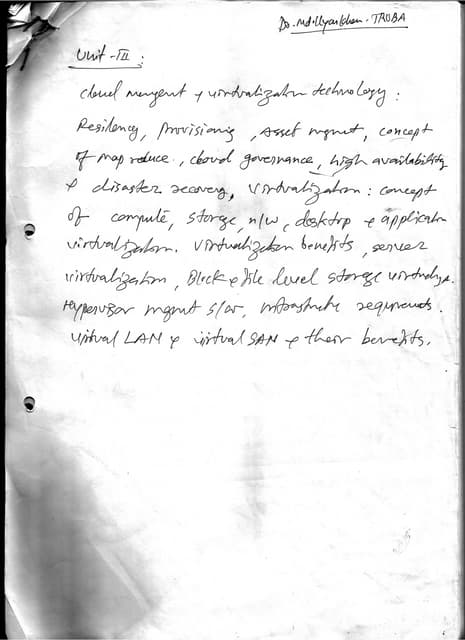 Dr. Md. Ilyas Khan - TRUBA
Unit - III :
cloud mngent & virtualization technology :
Resilency, Provisioning, Asset mgmt, concept
of map reduce, cloud governance, high availability
& disaster recovery, virtualization : concept
of compute, storage, n/w, desktop & application
virtualization. Virtualization benefits, server
virtualization, Block & file level storage virtualiza.
Hypervisor mgmt s/w, infrastructure requirements.
virtual LAN & virtual SAN & their benefits.